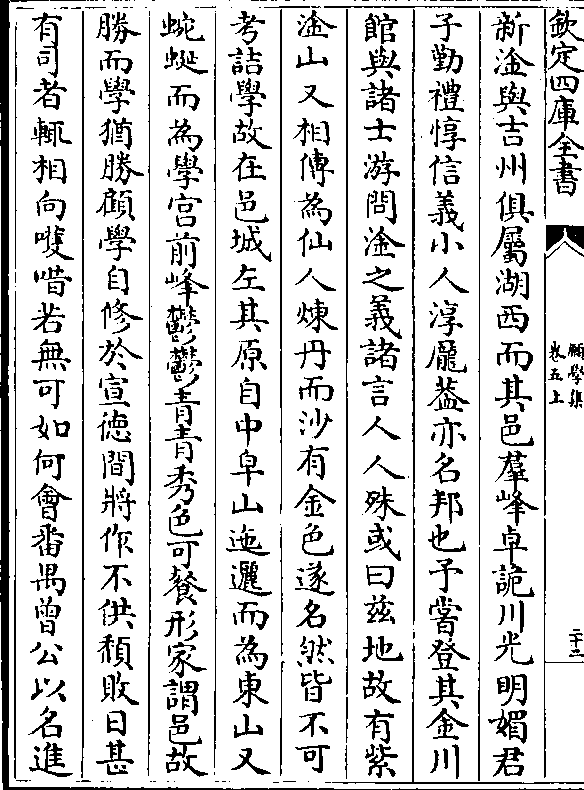 欽定四庫全書
願學集
卷五上
二十二
新淦與吉州俱屬湖西而其邑羣峰卓詭川光明媚君
子勤禮惇信義小人淳龐葢亦名邦也予嘗登其金川
館與諸士游問淦之義諸言人人殊或曰兹地故有紫
淦山又相傳為仙人煉丹而沙有金色遂名然皆不可
考詰學故在邑城左其原自中皁山迤邐而為東山又
蜿蜒而為學宫前峰鬱鬱青青秀色可餐形家謂邑故
勝而學猶勝顧學自修於宣徳間將作不供頽敗日甚
有司者輙相向嘆唶若無可如何會番禺曾公以名進